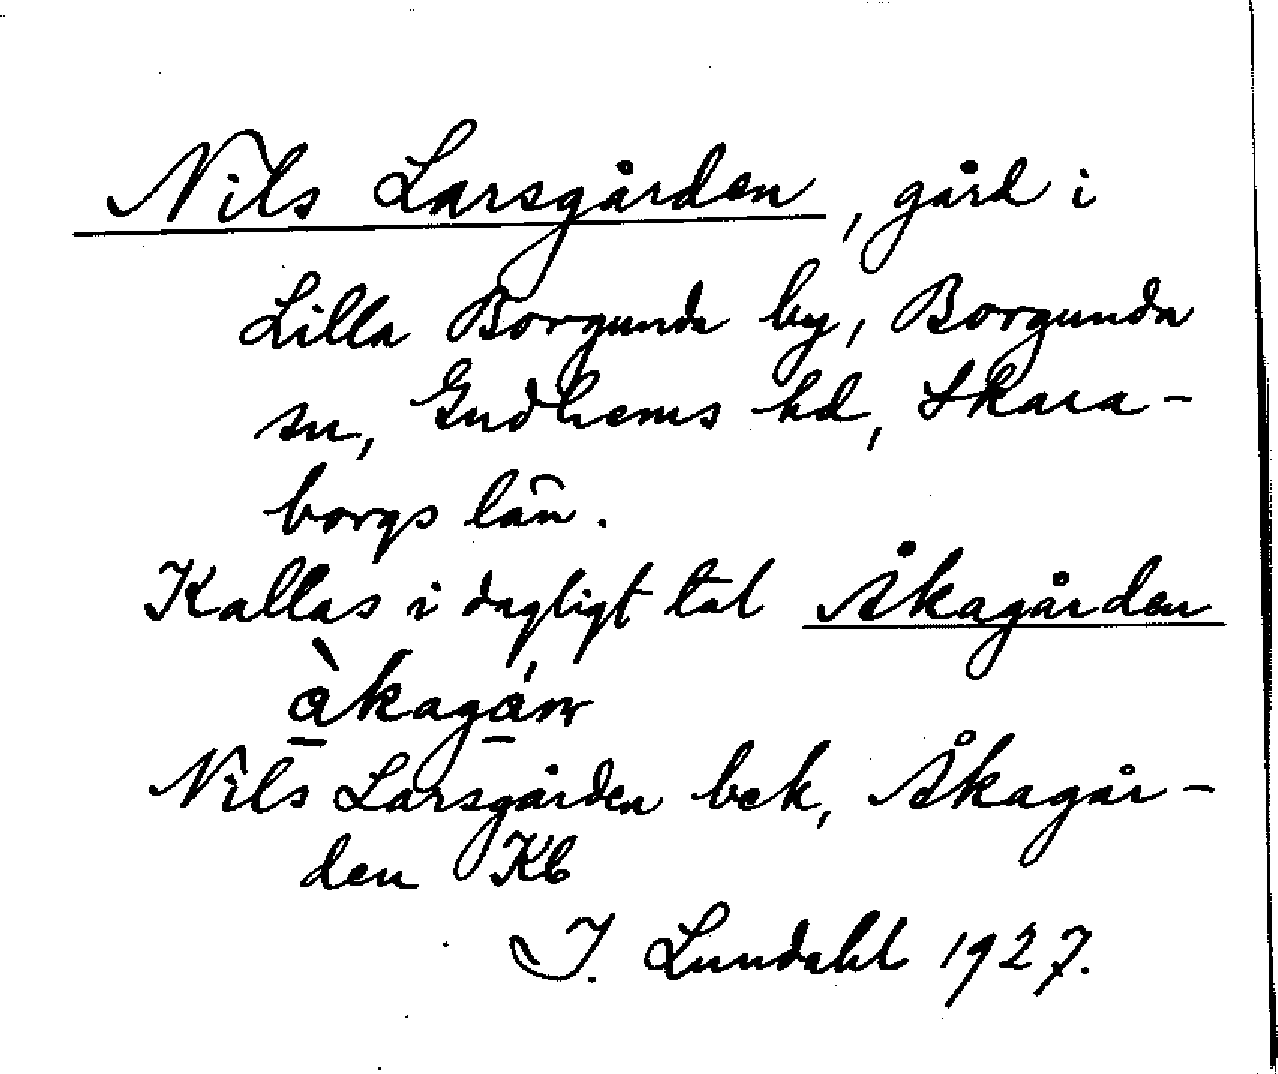 Nils Larsgården, gård i
Lilla Borgunda by, Borgunda
sn, Gudhems hd, Skara-
borgs län.
Kallas i dagligt tal Åkagården
Nils Larsgården bek, Åkagår-
den Kb
I. Lundahl 1927.